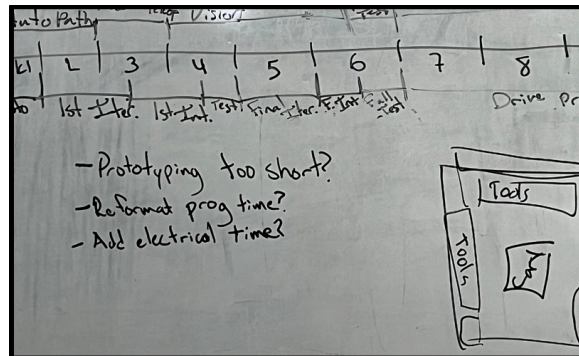 Auto Path
Vision
Test
2 3 4 5 6 7 8
1st Iter. 1st Int. Test Final Iter. F. Int. Full Test
Drive Pr
- Prototyping too short?
- Reformat prog time?
- Add electrical time?
Tools
Tools